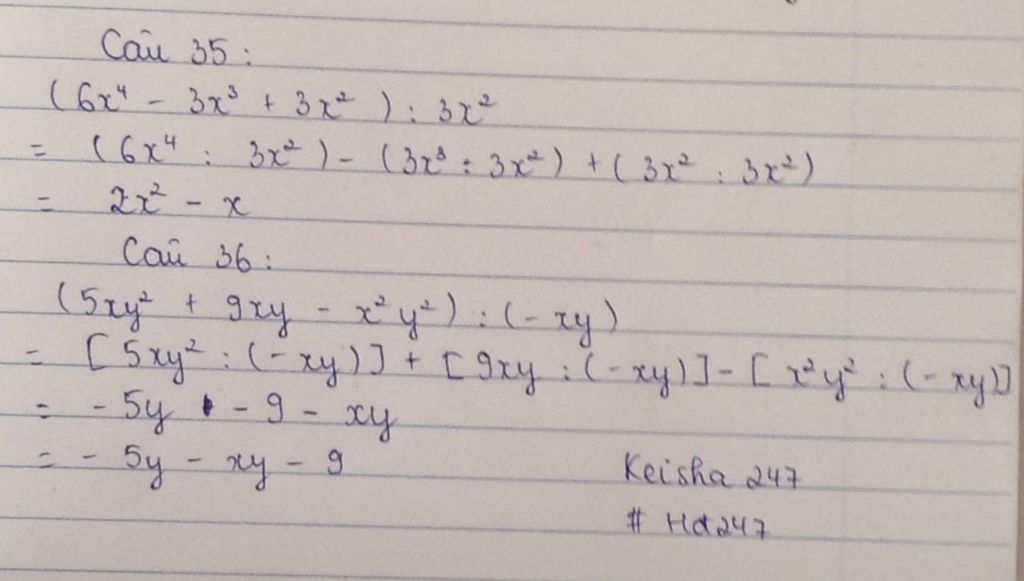 Câu 35 :
(6x⁴ - 3x³ + 3x²) : 3x²
= (6x⁴ : 3x²) - (3x³ : 3x²) + (3x² : 3x²)
= 2x² - x
Câu 36 :
(5xy² + 9xy - x²y²) : (- xy)
= [5xy² : (-xy)] + [9xy : (-xy)] - [x²y² : (-xy)]
= - 5y - 9 - xy
= - 5y - xy - 9
Keisha 247
# Hd247